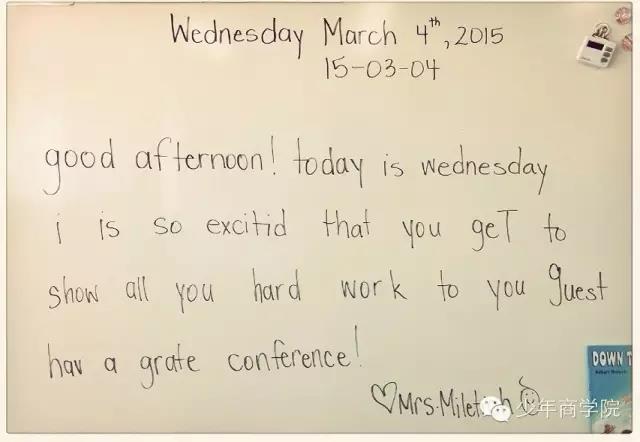 Wednesday March 4th, 2015
15-03-04
good afternoon! today is wednesday
i is so excitid that you geT to
show all you hard work to you guest
hav a grate conference!
♡Mrs.
少年商学院
DOWN T